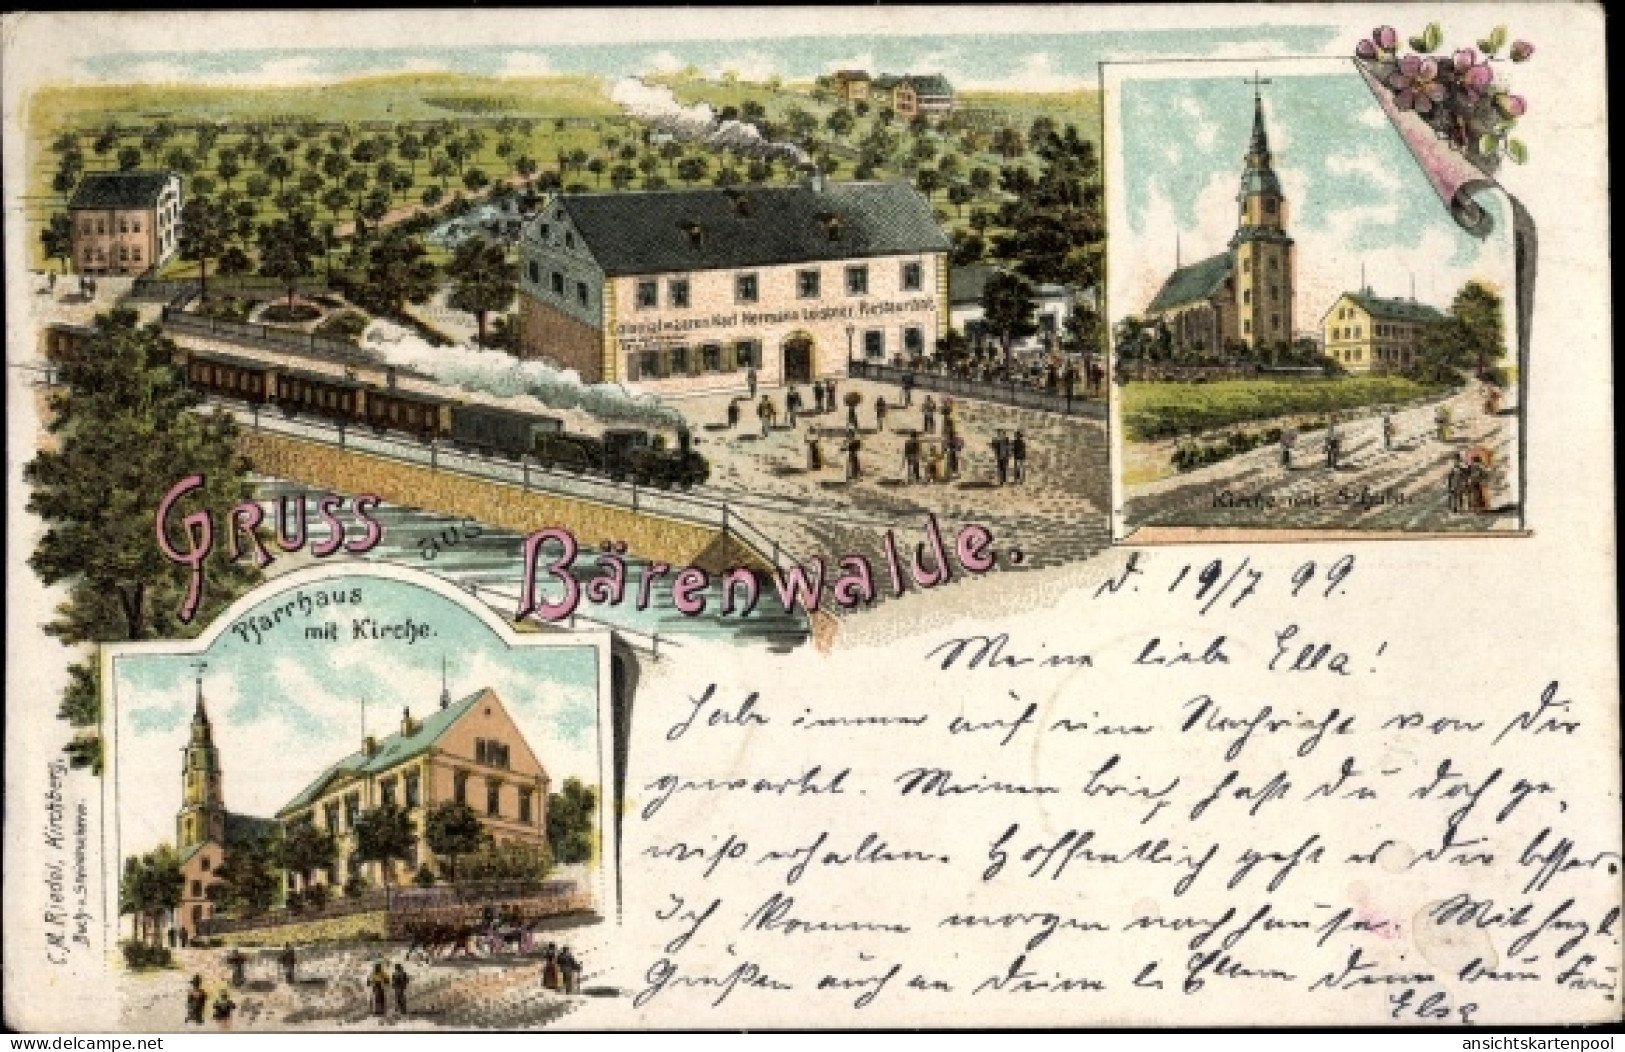 Colonialwaaren Karl Hermann Leistner Restaurant.
Kirche mit Schule.
Gruss aus Bärenwalde.
Pfarrhaus
mit Kirche.
C. M. Riedel, Kirchberg,
Buch- u. Steindruckerei.
d. 19/7 99.
Meine liebe Ella!
Habe immer auf eine Nachricht von Dir
gewartet. Meinen Brief hast Du doch ge-
wiß erhalten. Hoffentlich geht es Dir besser.
Ich komme morgen nachhause. Mit herzl.
Grüßen auch an Deine l. Eltern Deine
Elsa
delcampe.net
ansichtskartenpool